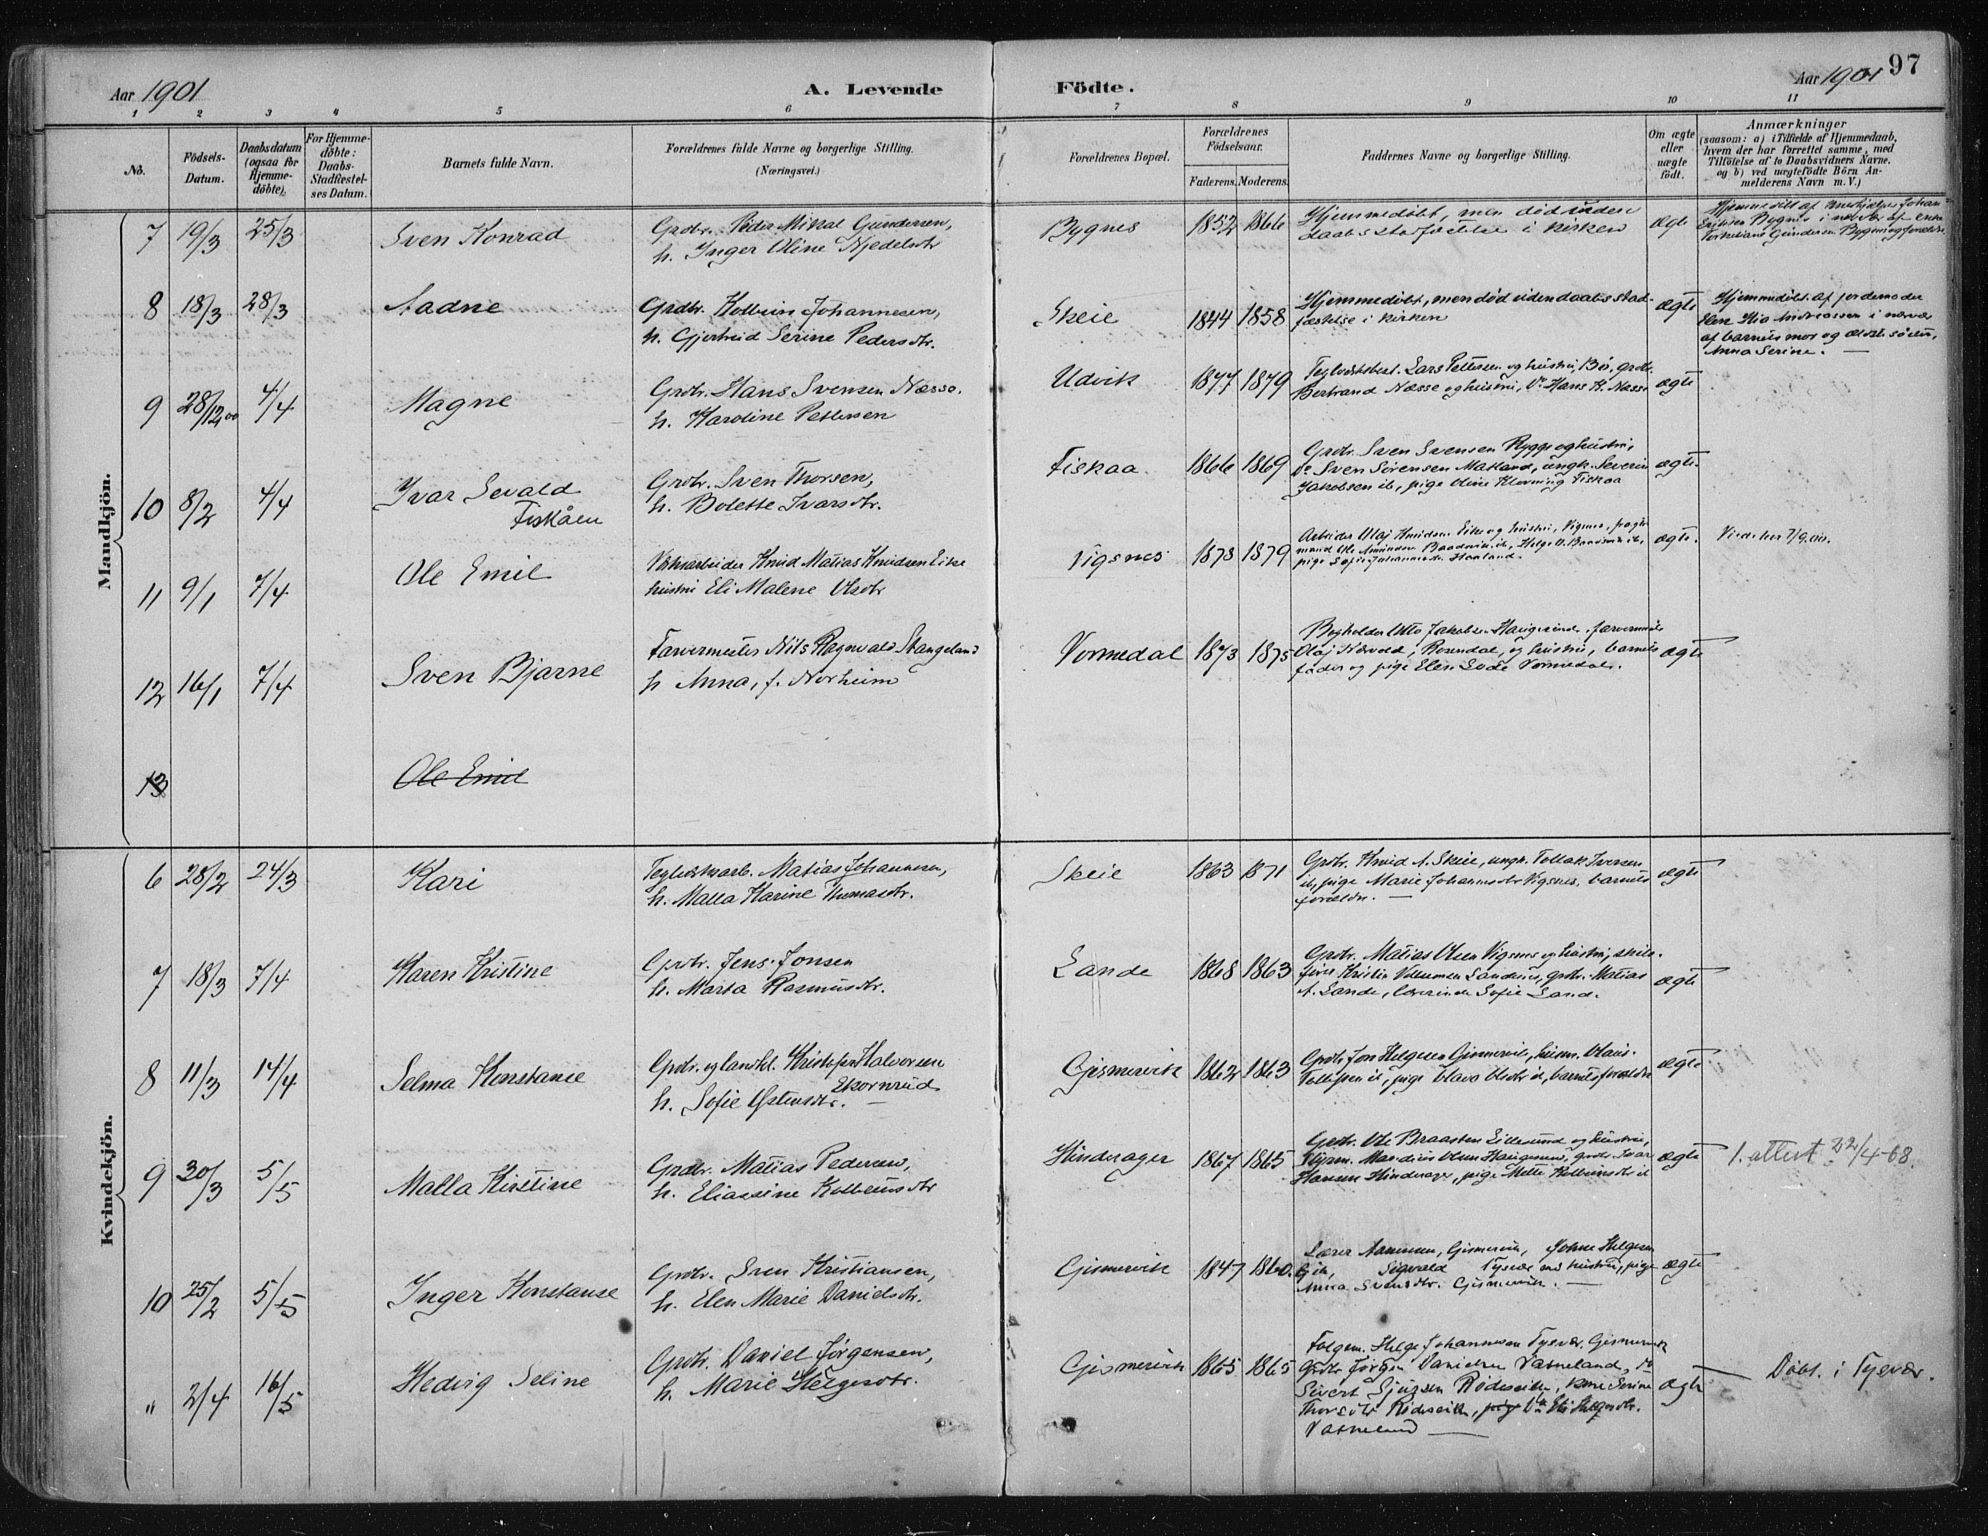 97
Aar 1901
A. Levende
Födte.
Aar 1901
1 2 3 4 5 6 7 8 9 10 11
No.
Födsels-
Datum.
Daabsdatum
(ogsaa for
Hjemme-
döbte).
For Hjemme-
döbte:
Daabs-
Stadfæstel-
ses Datum.
Barnets fulde Navn.
Forældrenes fulde Navne og borgerlige Stilling.
(Næringsvei.)
Forældrenes Bopæl.
Forældrenes
Födselsaar.
Faderens. Moderens.
Faddernes Navne og borgerlige Stilling.
Om ægte
eller
uægte
födt.
Anmærkninger
(saasom: a) i Tilfælde af Hjemmedaab,
hvem der har forrettet samme, med
Tilföielse af to Daabsvidners Navne.
og b) ved uægtefödte Börn An-
melderens Navn m. V.)
Mandkjön.
7 19/3 25/3
Sven Konrad
Grdbr. Peder Mikal Gundersen,
h. Inger Oline Kjedelsdtr
Bygnes
1852 1866
Hjemmedøbt, men død uden
daabsstadfæstelse i kirken
ægte
8 18/3 28/3
Aadne
Grdbr. Kolbein Johannesen,
h. Gjertrud Serine Pedersdtr.
Skeie
1844 1858
Hjemmedøbt, men død uden daabsstad-
fæstelse i kirken
ægte
Hjemmedøbt af jordemoder
Andreassen i nærvær
af barnets mor og ældste søster,
Anna Serine. —
9 28/12 00 4/4
Magne
Grdbr. Hans Svensen Næsse.
h. Karoline Pettersen
Udvik
1877 1879
Lars Pettersen og hustru, Bø, grdb.
Bertrand Næsse og hustru, Hans K. Næsse
ægte
10 8/2 4/4
Ivar Sevald
Fiskåen
Grdbr. Sven Thorsen,
h. Bolette Ivarsdtr.
Fiskaa
1866 1869
Grdbr. Sven Svensen Rygge og hustru,
Do Sven Sørensen Matland, ungk. Severin
Jakobsen ib, pige Oline Fiskaa
ægte.
11 9/1 7/4
Ole Emil
Knud Matias Knudsen Eike
hustru Eli Malene Olsdtr
Vigsnes
1873 1879
Arbeider Olaf Knudsen Eike og hustru, Vigsnes,
Ole Amundsen
pige Sofie Haaland.
ægte.
12 16/1 7/4
Sven Bjarne
Farvermester Nils Ragnvald Stangeland
h Anna, f. Norheim
Vormedal
1873 1875
Bogholder Otto Jakobsen Haugesund, farvermester
Olaf Rosendal, og hustru, barnets
fader og pige Elen Vormedal.
ægte
13
Ole Emil
Kvindekjön.
6 28/2 24/3
Kari
Teglverksarb. Matias Johannesen,
h. Malla Karine Thomasdtr.
Skeie
1863 1871
Grdbr. Knud A. Skeie, ungk. Tollak Iversen
ib, pige Marie Johannsdtr Vigsnes, barnets
forældre. —
ægte
7 18/3 7/4
Karen Kristine
Grdbr. Jens Jonsen
h. Marta Rasmusdtr.
Lande
1868 1863
Grdbr. Matias Olsen Vigsnes og hustru, skibs-
fører Kristen grdbr. Matias
A. Lande, lærerinde Sofie Sand.
ægte
8 11/3 14/4
Selma Konstanse
Grdbr. og landhl. Kristofer Halvorsen
Ekornrud
h. Sofie Østensdtr. —
Gismervik
1862 1863
Grdbr Jon Helgesen Gismervik,
Tollefsen ib, pige Olava Olsdtr ib, barnets forældre
ægte
9 30/3 5/5
Malla Kirstine
Grdbr. Matias Pedersen,
h. Eliassine Kolbeinsdtr
Hinderager
1867 1865
Grdbr. Ole Braasten og hustru,
Olsen Haugesund, grdbr. Ivar
Hansen Hinderager, pige Mette Kolbeinsdtr ib
ægte
1. attest 22/4-68.
10 25/2 5/5
Inger Konstanse
Grdbr. Sven Kristiansen,
h. Elen Marie Danielsdtr.
Gismervik
1847 1860.
Lærer Aamunsen, Gismervik, Johne Helgesen
ib, Sigvald Tysvær med hustru, pige
Anna Svensdtr. Gismervik. —
ægte
" 2/4 16/5
Hedvig Seline
Grdbr. Daniel Jørgensen,
h. Marie Helgesdtr.
Gismervik
1865 1865
Folgem. Helge Johannesen Tysvær, Gismervik
Grdbr Jørgen Danielsen Vatneland,
Sivert Rødseik, Serine
Thorsdtr Rødseik, Eli Helgesdtr.
Vatneland —
ægte
— Døbt i Tysvær.